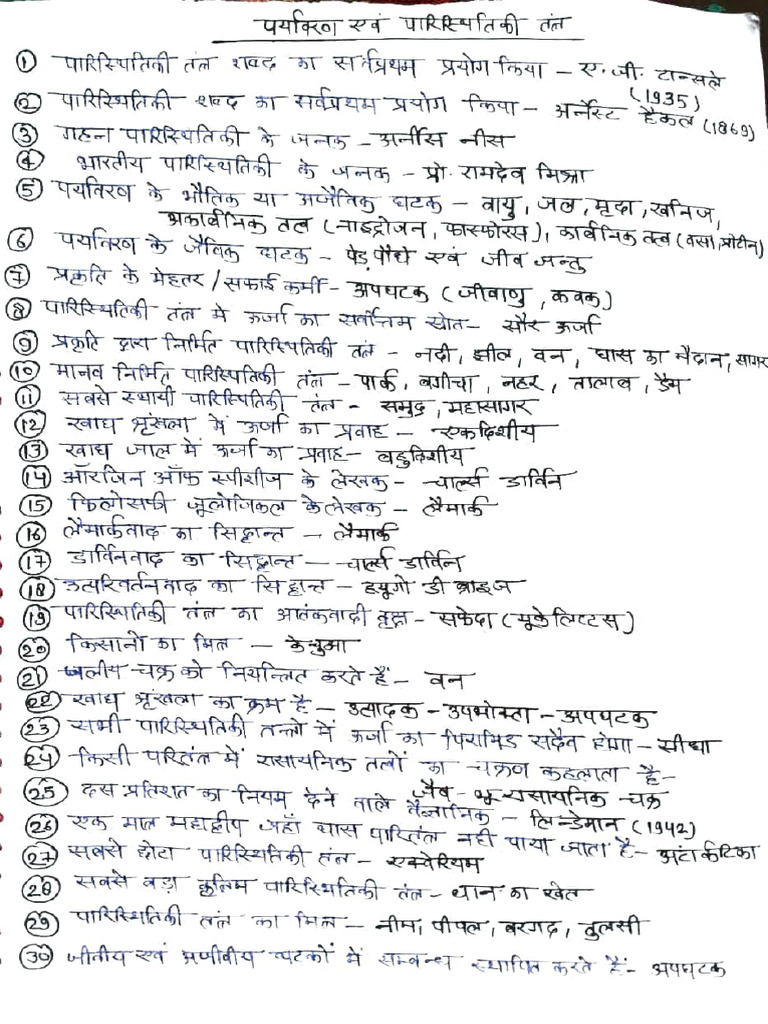 पर्यावरण एवं पारिस्थितिकी तंत्र
① पारिस्थितिकी तंत्र शब्द का सर्वप्रथम प्रयोग किया – ए. जी. टान्सले
(1935)
② पारिस्थितिकी शब्द का सर्वप्रथम प्रयोग किया – अर्नेस्ट हैकल (1869)
③ गहन पारिस्थितिकी के जनक – अर्नीस नीस
④ भारतीय पारिस्थितिकी के जनक – प्रो. रामदेव मिश्रा
⑤ पर्यावरण के भौतिक या अजैविक घटक – वायु, जल, मृदा, खनिज,
अकार्बनिक तत्व (नाइट्रोजन, फास्फोरस), कार्बनिक तत्व (वसा, प्रोटीन)
⑥ पर्यावरण के जैविक घटक – पेड़ पौधे एवं जीव जन्तु
⑦ प्रकृति के मेहतर / सफाई कर्मी – अपघटक (जीवाणु, कवक)
⑧ पारिस्थितिकी तंत्र मे ऊर्जा का सर्वोत्तम स्रोत – सौर ऊर्जा
⑨ प्रकृति द्वारा निर्मित पारिस्थितिकी तंत्र – नदी, झील, वन, घास का मैदान, सागर
⑩ मानव निर्मित पारिस्थितिकी तंत्र – पार्क, बगीचा, नहर, तालाब, डैम
⑪ सबसे स्थायी पारिस्थितिकी तंत्र – समुद्र, महासागर
⑫ खाद्य श्रृंखला में ऊर्जा का प्रवाह – एकदिशीय
⑬ खाद्य जाल में ऊर्जा का प्रवाह – बहुदिशीय
⑭ ऑरजिन ऑफ स्पीशीज के लेखक – चार्ल्स डार्विन
⑮ फिलोसफी जूलोजिकल के लेखक – लैमार्क
⑯ लैमार्कवाद का सिद्धान्त – लैमार्क
⑰ डार्विनवाद का सिद्धान्त – चार्ल्स डार्विन
⑱ उत्परिवर्तनवाद का सिद्धान्त – ह्यूगो डी ब्राइज
⑲ पारिस्थितिकी तंत्र का आतंकवादी वृक्ष – सफेदा (यूकेलिप्टस)
⑳ किसानों का मित्र – केचुआ
㉑ जलीय चक्र को नियन्त्रित करते हैं – वन
㉒ खाद्य श्रृंखला का क्रम है – उत्पादक – उपभोक्ता – अपघटक
㉓ सभी पारिस्थितिकी तन्त्रों में ऊर्जा का पिरामिड सदैव होगा – सीधा
㉔ किसी परितंत्र में रासायनिक तत्वों का चक्रण कहलाता है –
जैव-भू-रासायनिक चक्र
㉕ दस प्रतिशत का नियम देने वाले वैज्ञानिक – लिन्डेमान (1942)
㉖ एक मात्र महाद्वीप जहाँ घास परितंत्र नहीं पाया जाता है – अंटार्कटिका
㉗ सबसे छोटा पारिस्थितिकी तंत्र – एक्वेरियम
㉘ सबसे बड़ा कृत्रिम पारिस्थितिकी तंत्र – धान का खेत
㉙ पारिस्थितिकी तंत्र का मित्र – नीम, पीपल, बरगद, तुलसी
㉚ जीवीय एवं अजीवीय घटकों में सम्बन्ध स्थापित करते हैं – अपघटक